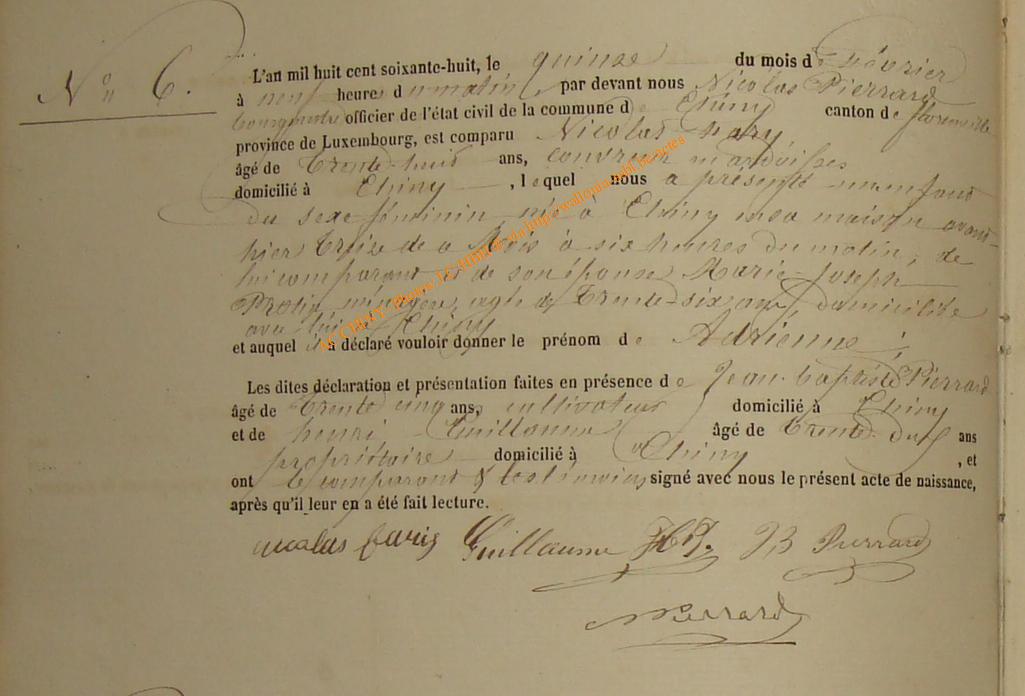 N° 6.
L'an mil huit cent soixante-huit, le quinze du mois de Février
à neuf heures du matin, par devant nous Nicolas Pierrard
bourgmestre officier de l'état civil de la commune de Chiny canton de florenville
province de Luxembourg, est comparu Nicolas
âgé de trente-huit ans, couvreur en ardoises
domicilié à Chiny, lequel nous a présenté un enfant
du sexe féminin né à Chiny en sa maison avant-
hier treize de ce Mois à six heures du matin, de
lui comparant et de son épouse Marie-Joseph
ménagère, agée de trente-six ans, domiciliée
avec lui à Chiny
et auquel il a déclaré vouloir donner le prénom de Adrienne ;
Les dites déclaration et présentation faites en présence de Jean-baptiste Pierrard
âgé de trente cinq ans, cultivateur domicilié à Chiny
et de henri Guillaume âgé de trente ans
propriétaire domicilié à Chiny, et
ont le comparant & les témoins signé avec nous le présent acte de naissance,
après qu'il leur en a été fait lecture.
nicolas Guillaume JB Pierrard
Pierrard